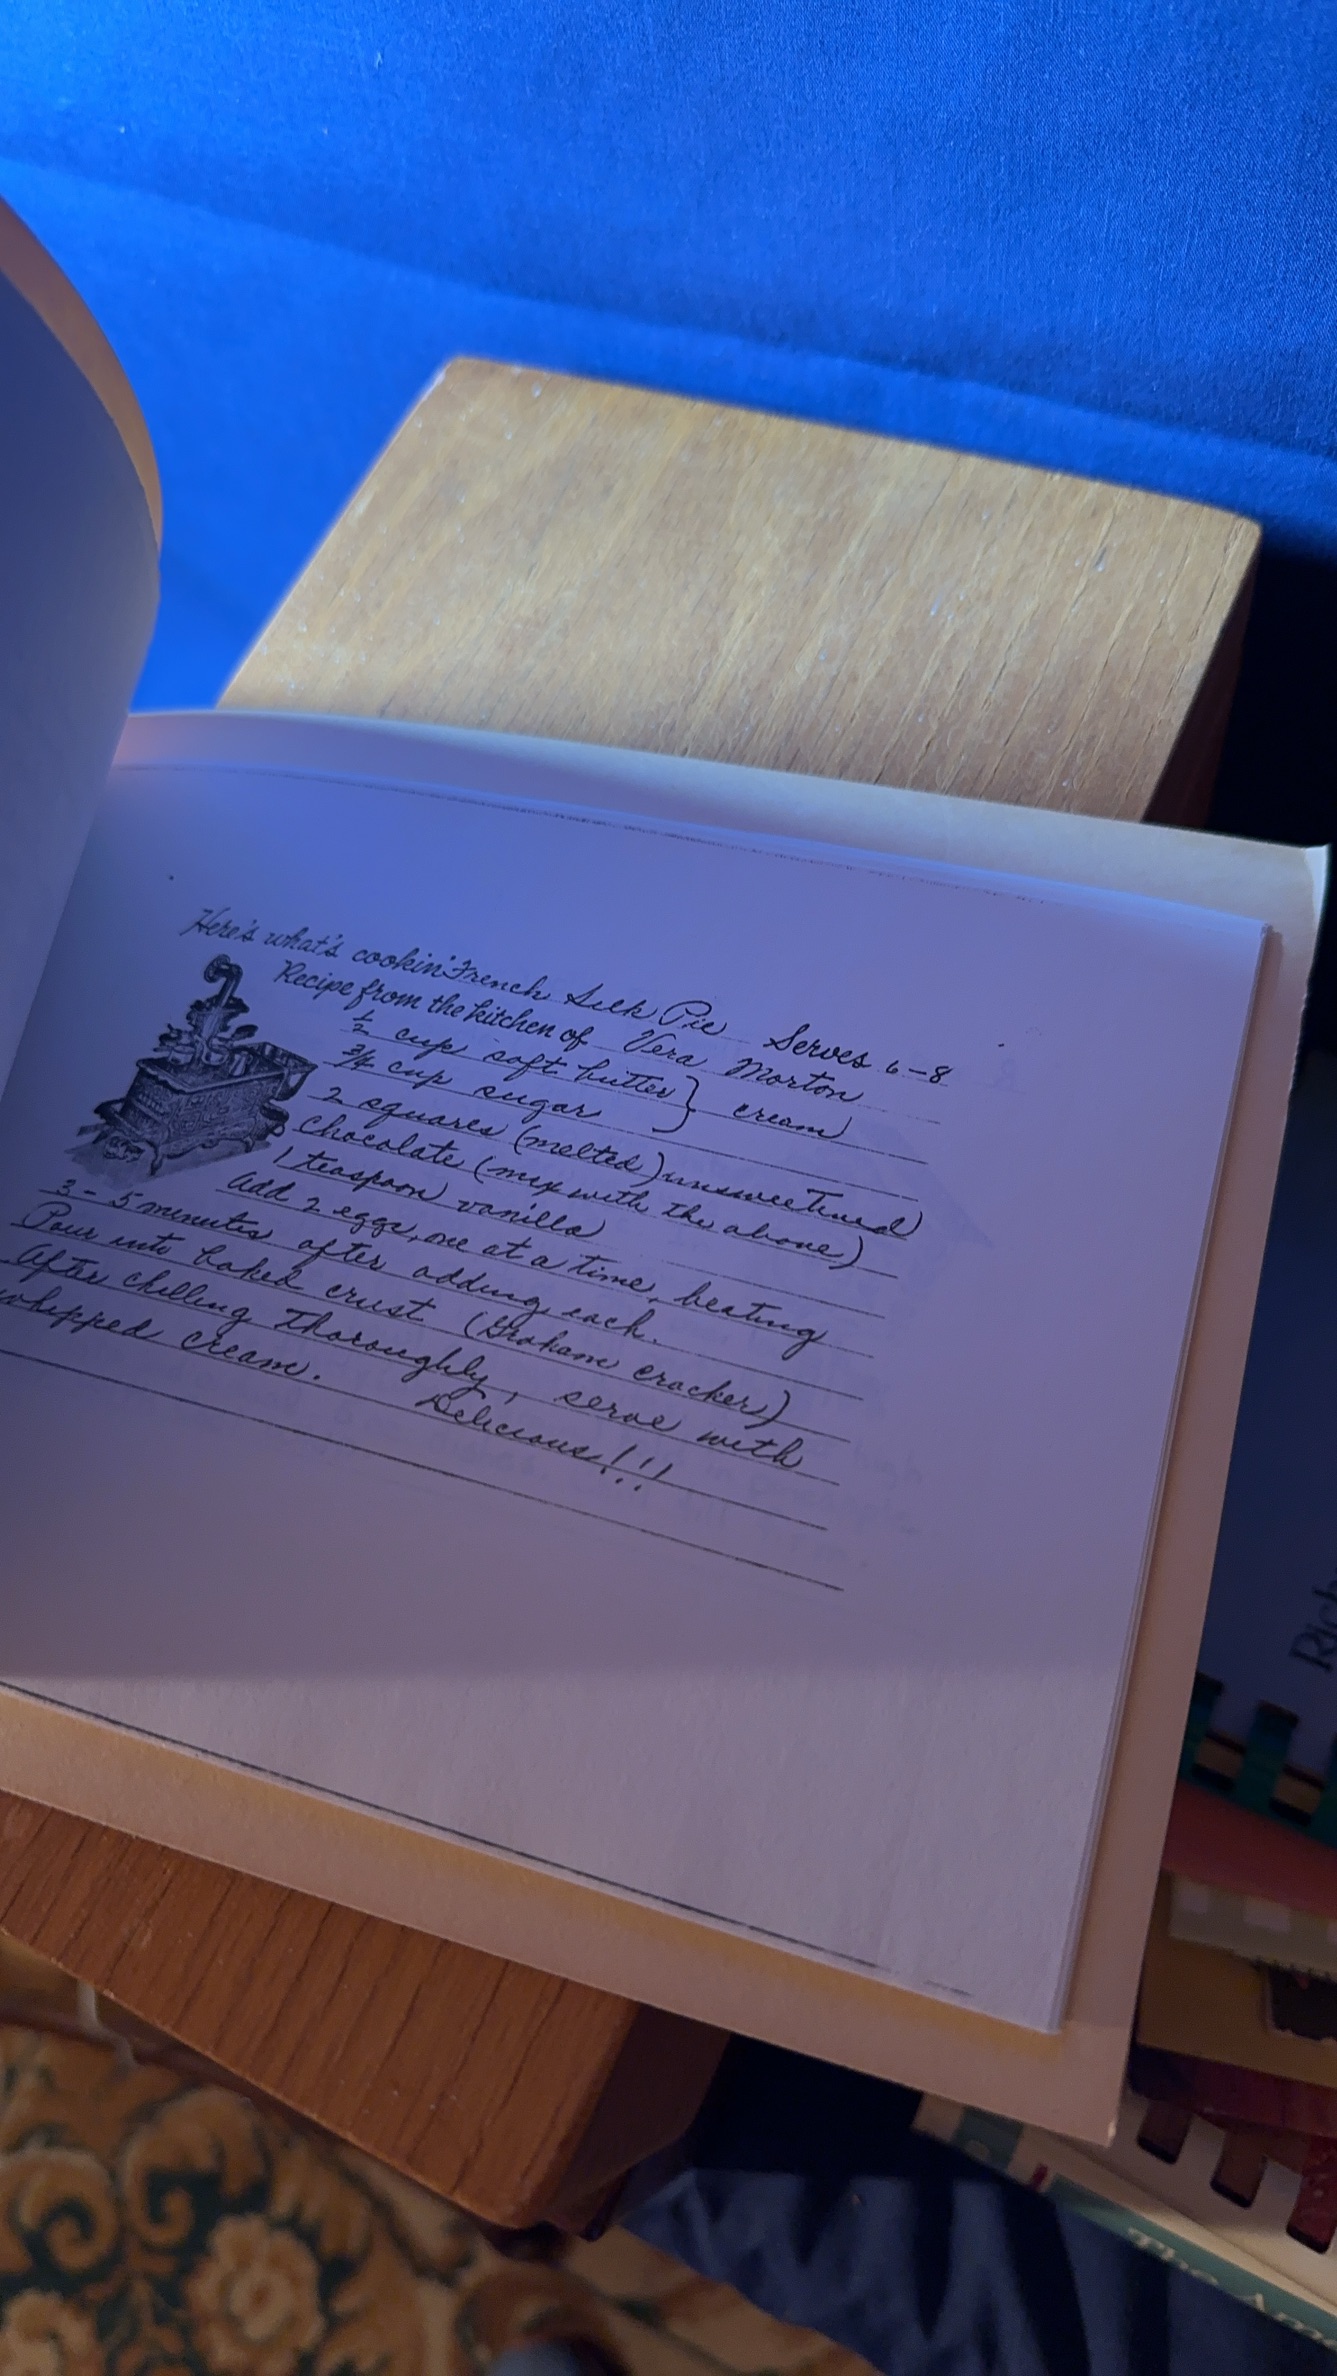 Here's what's cookin' French Silk Pie Serves 6-8
Recipe from the kitchen of Vera Morton
1/2 cup soft butter } cream
3/4 cup sugar
2 squares (melted) unsweetened
Chocolate (mix with the above)
1 teaspoon vanilla
Add 2 eggs, one at a time, beating
3-5 minutes after adding each.
Pour into baked crust (Graham cracker)
After chilling thoroughly, serve with
whipped cream. Delicious!!!